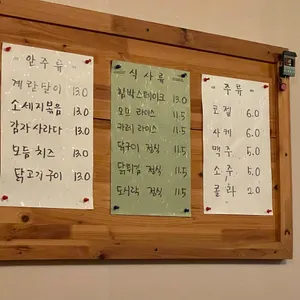 안주류
계란말이 13.0
소세지볶음 13.0
감자사라다 13.0
모듬 치즈 13.0
닭고기구이 13.0
식사류
함박스테이크 13.0
오므 라이스 11.5
카레 라이스 11.5
닭구이 정식 11.5
닭튀김 정식 11.5
도시락 정식 11.5
주류
고잡 6.0
사케 6.0
맥주 5.0
소주 5.0
콜라 2.0